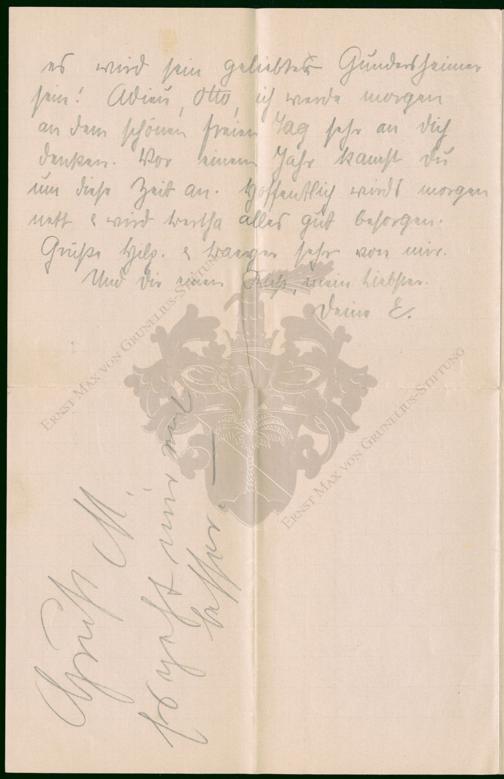 es wird sein geliebter Gundersheimer
sein! Adieu, Otto, ich werde morgen
an dem schönen freien Tag sehr an Dich
denken. Vor einem Jahr kamst Du
um diese Zeit an. Hoffentlich wirds morgen
nett & wird Bertha alles gut besorgen.
Grüße Hilp. & sehr von mir.
Und Dir einen Kuß, mein Liebster.
Deine E.
Gruß M.
Es geht mir
besser.
ERNST MAX VON GRUNELIUS-STIFTUNG
ERNST MAX VON GRUNELIUS-STIFTUNG